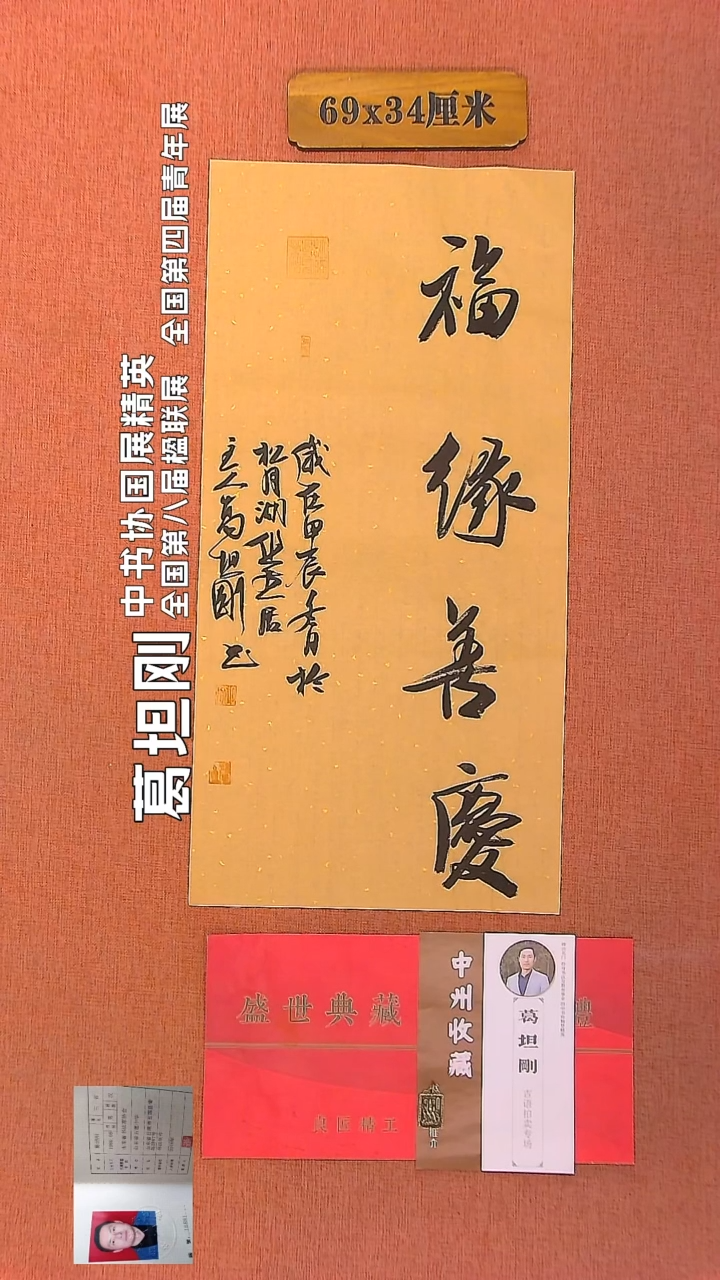 69x34厘米
福缘善慶
歲在甲辰冬月於
主人葛坦剛书
葛坦刚
中书协国展精英
全国第八届楹联展 全国第四届青年展
盛世典藏
良匠精工
中州收藏
葛坦剛
吉语拍卖专场